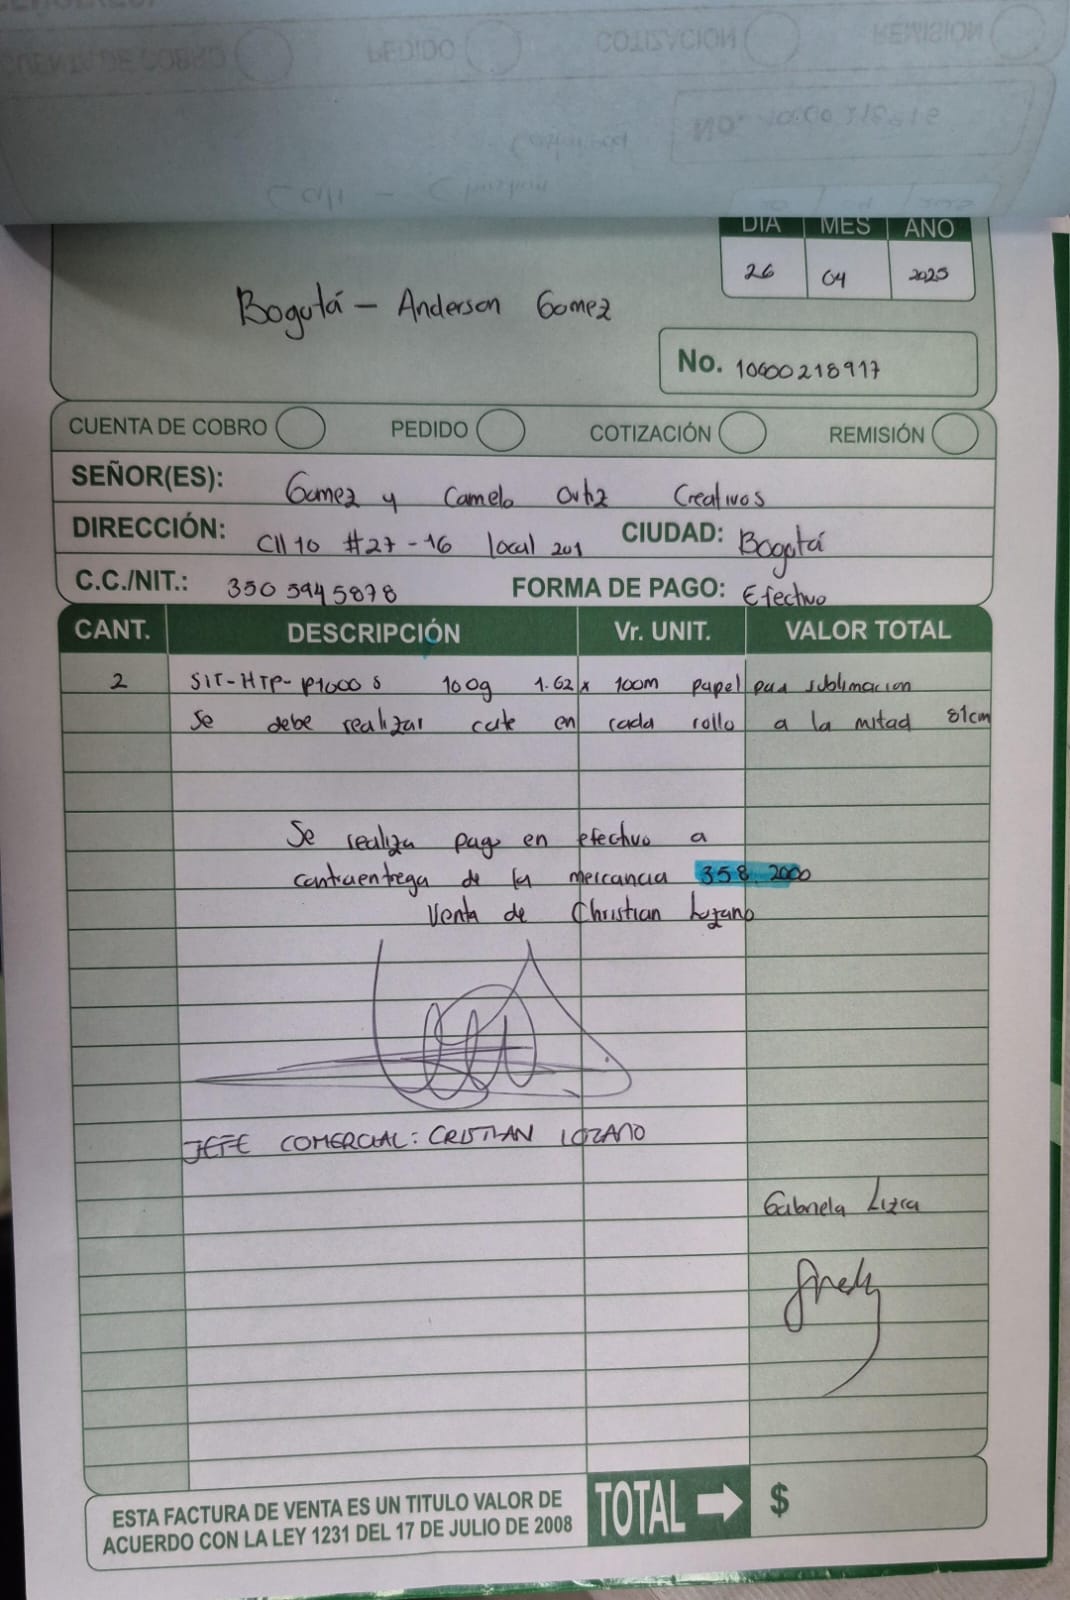 CUENTA DE COBRO PEDIDO COTIZACION REMISION
DIA MES AÑO
26 04 2025
Bogotá - Anderson Gomez
No. 10600218917
CUENTA DE COBRO PEDIDO COTIZACIÓN REMISIÓN
SEÑOR(ES): Gomez y Camelo Ortiz Creativos
DIRECCIÓN: Cll 10 #27-16 local 201 CIUDAD: Bogotá
C.C./NIT.: 350 5945878 FORMA DE PAGO: Efectivo
CANT. DESCRIPCIÓN Vr. UNIT. VALOR TOTAL
2 SIT-HTP-P1000 S 100g 1.62 x 100m papel para sublimacion
Se debe realizar corte en cada rollo a la mitad 81cm
Se realiza pago en efectivo a
contraentrega de la mercancia 358.2000
Venta de Christian Lozano
JEFE COMERCIAL: CRISTIAN LOZANO
Gabriela
ESTA FACTURA DE VENTA ES UN TITULO VALOR DE
ACUERDO CON LA LEY 1231 DEL 17 DE JULIO DE 2008
TOTAL $